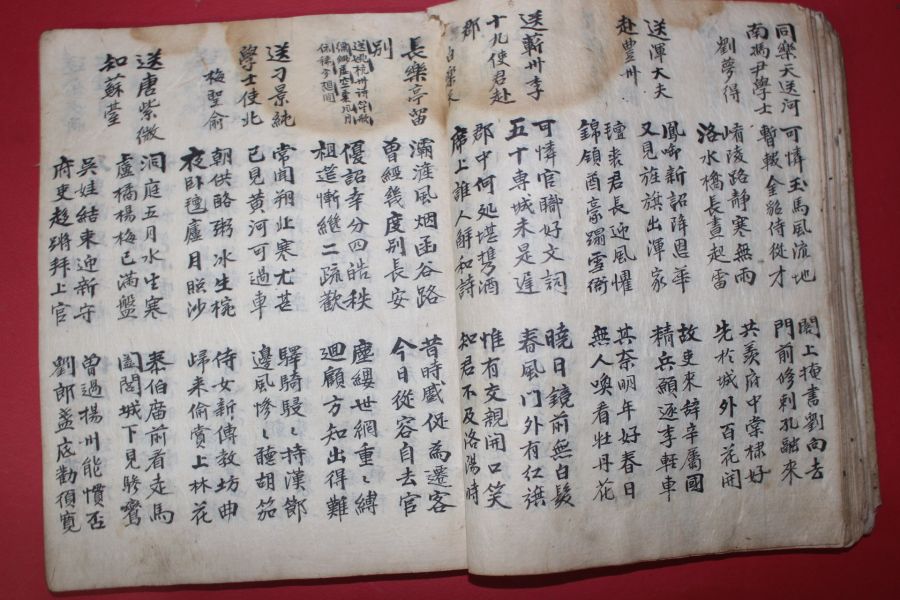 同樂天送河
南馮尹學士
劉夢得
可憐玉馬風流地
閣上掩書劉向去
暫輟金貂侍從才
門前修刺孔融來
崤陵路靜寒無雨
共羨府中棠棣好
洛水橋長晝起雷
先於城外百花開
送渾大夫
赴豊州
鳳啣新詔降恩華
故吏來辭辛屬國
又見旌旗出渾家
精兵願逐李軽車
氊裘君長迎風懼
其奈明年好春日
錦領酋豪蹋雪衙
無人喚看牡丹花
送蘄州李
十九使君赴
郡
白樂天
可憐官職好文詞
曉日鏡前無白髮
五十專城未是遲
春風門外有红旗
郡中何処堪携酒
惟有交親開口笑
席上誰人解和詩
知君不及洛陽時
長樂亭留
別
灞滻風烟函谷路
昔時蹙促為遷客
曾經幾度別長安
今日從容自去官
優詔幸分四皓秩
塵纓世網重〻縛
祖道慚繼二疏歡
廻顧方知出得難
送刁景純
學士使北
梅聖俞
常聞朔北寒尤甚
驛騎駸〻持漢節
已見黄河可過車
邊風慘〻聽胡笳
朝供酪粥冰生椀
侍女新傳教坊曲
夜卧氊廬月照沙
歸来偷賞上林花
送唐紫微
知蘇臺
洞庭五月水生寒
泰伯廟前看走馬
盧橘楊梅已滿盤
闔閭城下見驂鸞
吳娃結束迎新守
曾過揚州能慣否
府吏趍蹡拜上官
劉郎盃底勸須寬